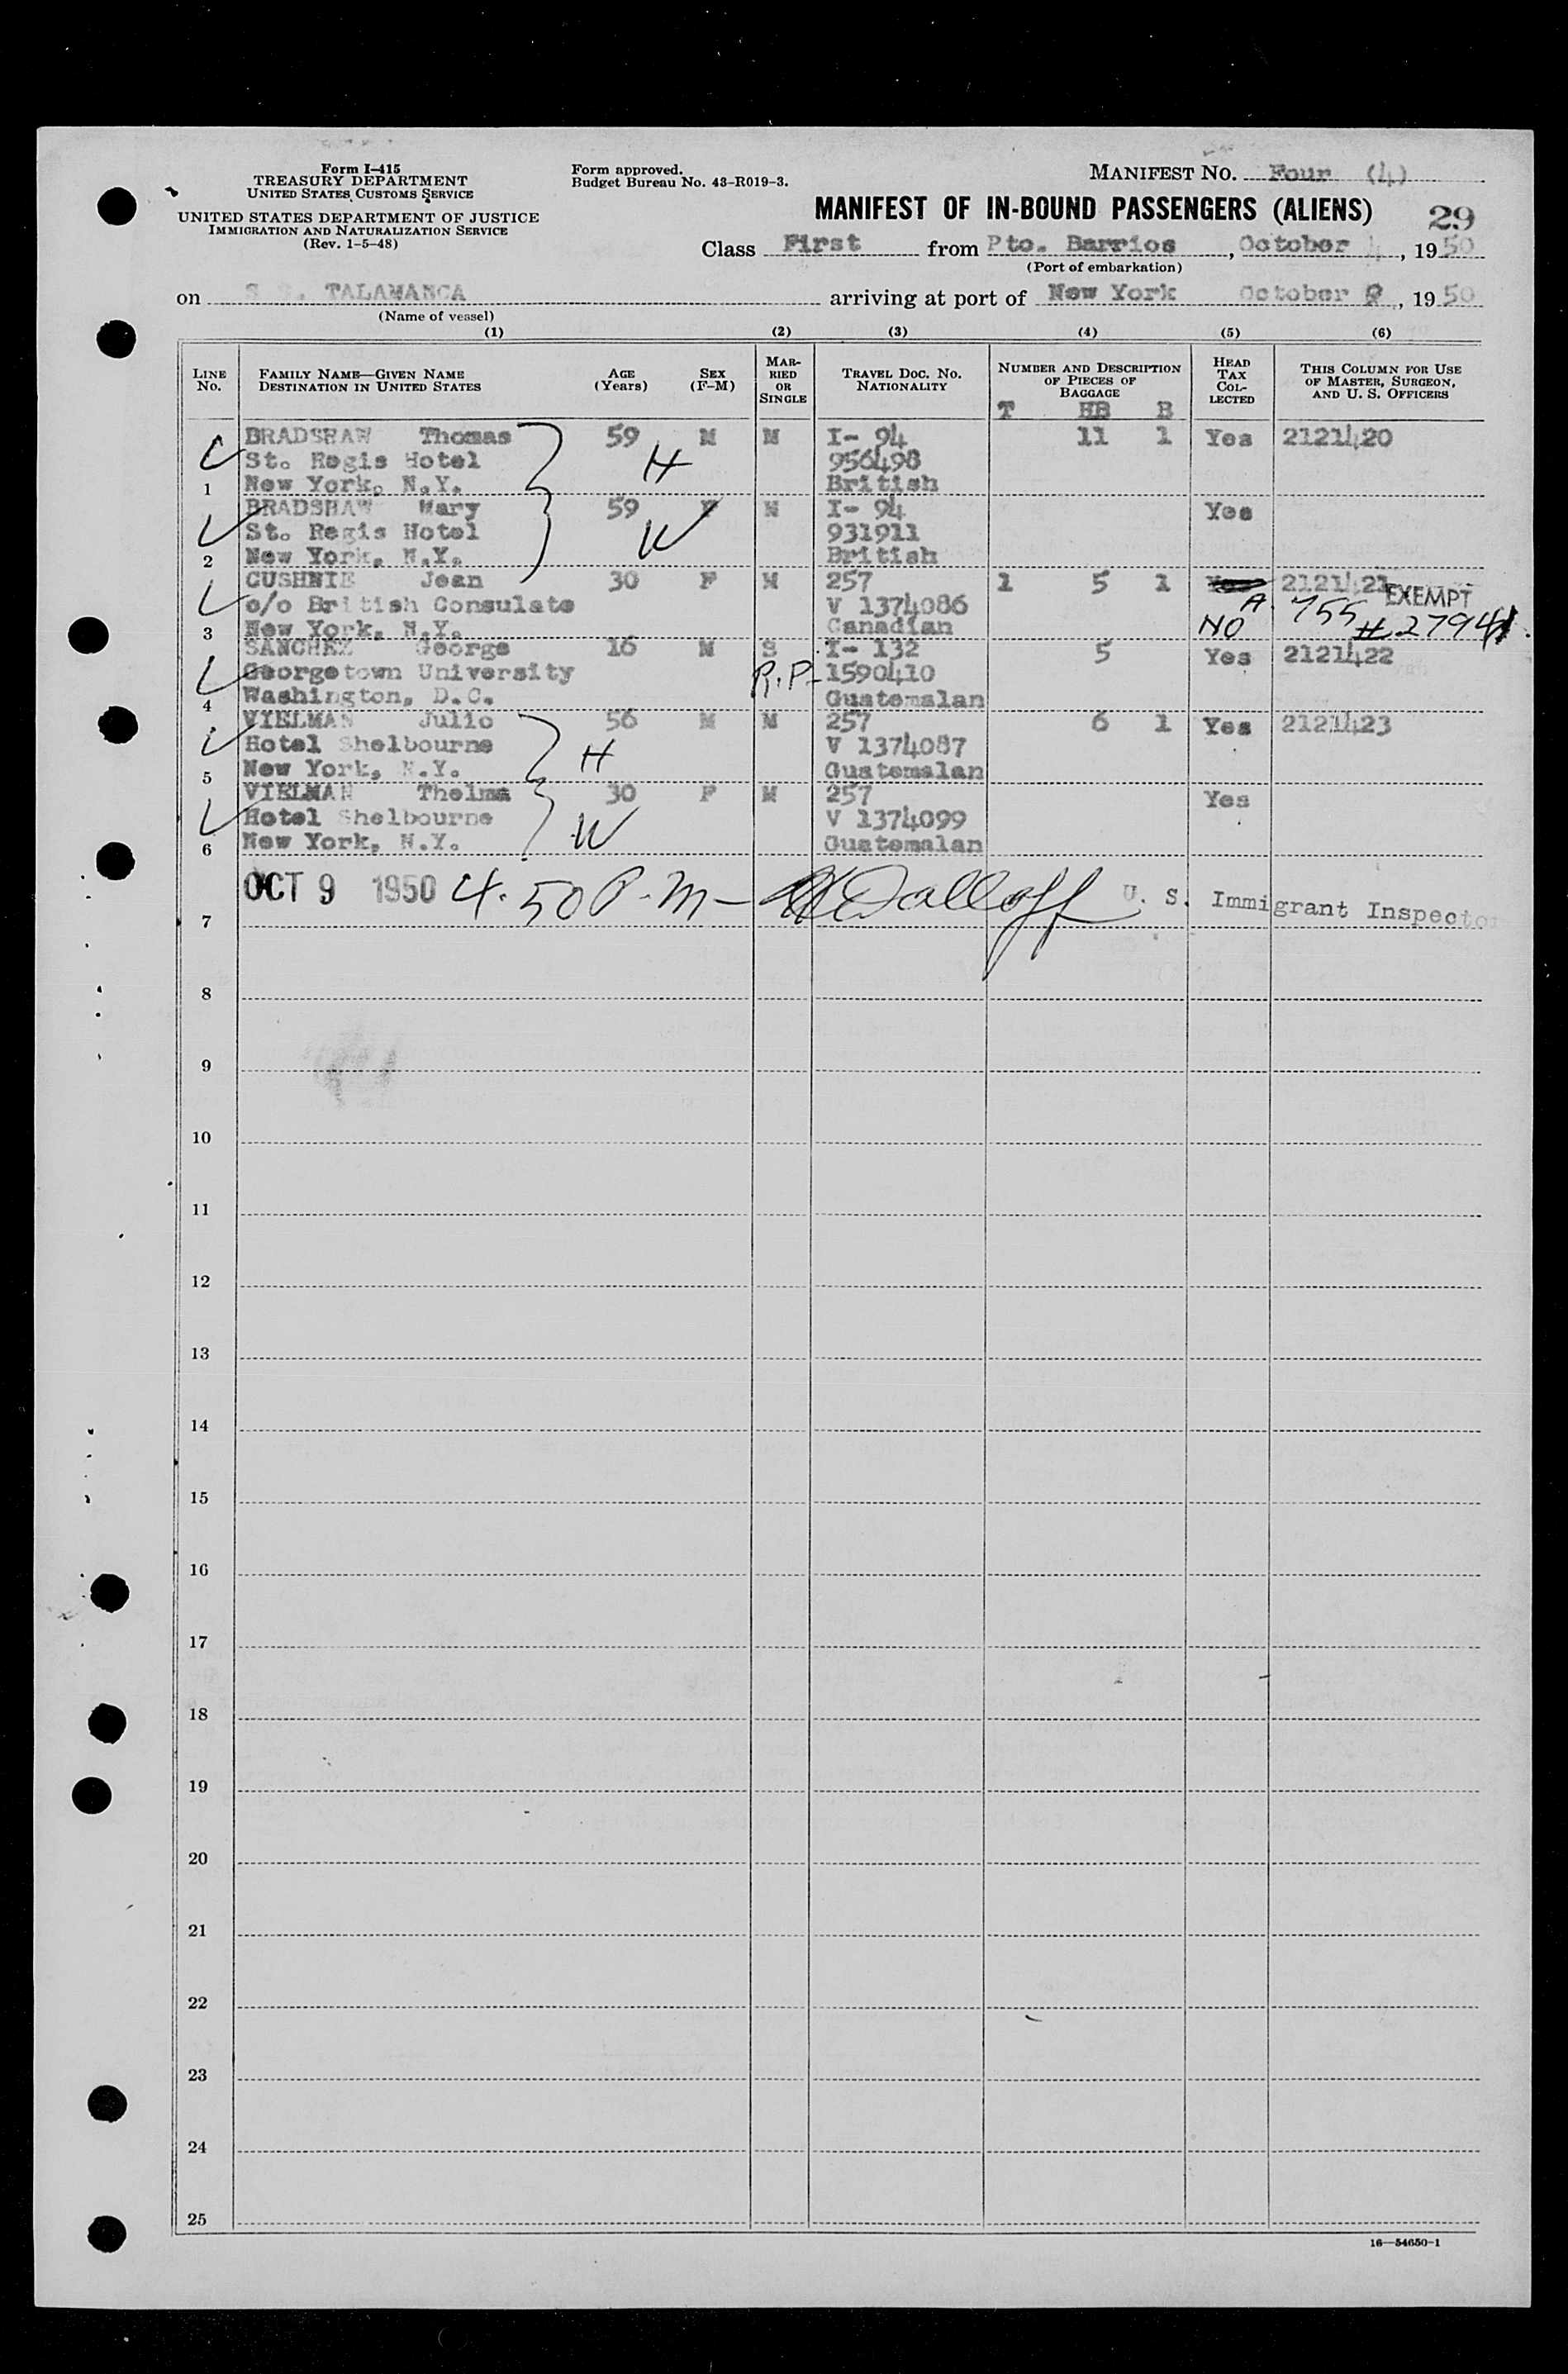 Form I-415
TREASURY DEPARTMENT
UNITED STATES CUSTOMS SERVICE
UNITED STATES DEPARTMENT OF JUSTICE
IMMIGRATION AND NATURALIZATION SERVICE
(Rev. 1-5-48)
Form approved.
Budget Bureau No. 43-R019-3.
MANIFEST NO. Four (4)
MANIFEST OF IN-BOUND PASSENGERS (ALIENS) 29
Class First from Pto. Barrios, October 4, 1950
(Port of embarkation)
on S S. TALAMANCA arriving at port of New York October 1950
(Name of vessel)
(1) (2) (3) (4) (5) (6)
LINE NO. FAMILY NAME—GIVEN NAME DESTINATION IN UNITED STATES AGE (Years) SEX (F-M) MARRIED OR SINGLE TRAVEL DOC. NO. NATIONALITY NUMBER AND DESCRIPTION OF PIECES OF BAGGAGE HEAD TAX COLLECTED THIS COLUMN FOR USE OF MASTER, SURGEON, AND U. S. OFFICERS
T HB B
BRADSHAW Thomas 59 M M I- 94 11 1 Yes 2121420
St. Regis Hotel H 956498
1 New York, N.Y. British
BRADSHAW Mary 59 F M I- 94 Yes
St. Regis Hotel W 931911
2 New York, N.Y. British
CUSHNIE Jean 30 F M 257 1 5 1 Yes 2121421 EXEMPT
c/o British Consulate V 1374086 A 755
3 New York, N.Y. Canadian NO #27941
SANCHEZ George 16 M S I- 132 5 Yes 2121422
Georgetown University R.P- 1590410
4 Washington, D.C. Guatemalan
VIELMAN Julio 56 M M 257 6 1 Yes 2121423
Hotel Shelbourne H V 1374087
5 New York, N.Y. Guatemalan
VIELMAN Thelma 30 F M 257 Yes
Hotel Shelbourne W V 1374099
6 New York, N.Y. Guatemalan
OCT 9 1950 4.50 P.M- Dalloff U. S. Immigrant Inspector
7
8
9
10
11
12
13
14
15
16
17
18
19
20
21
22
23
24
25
16—54650-1